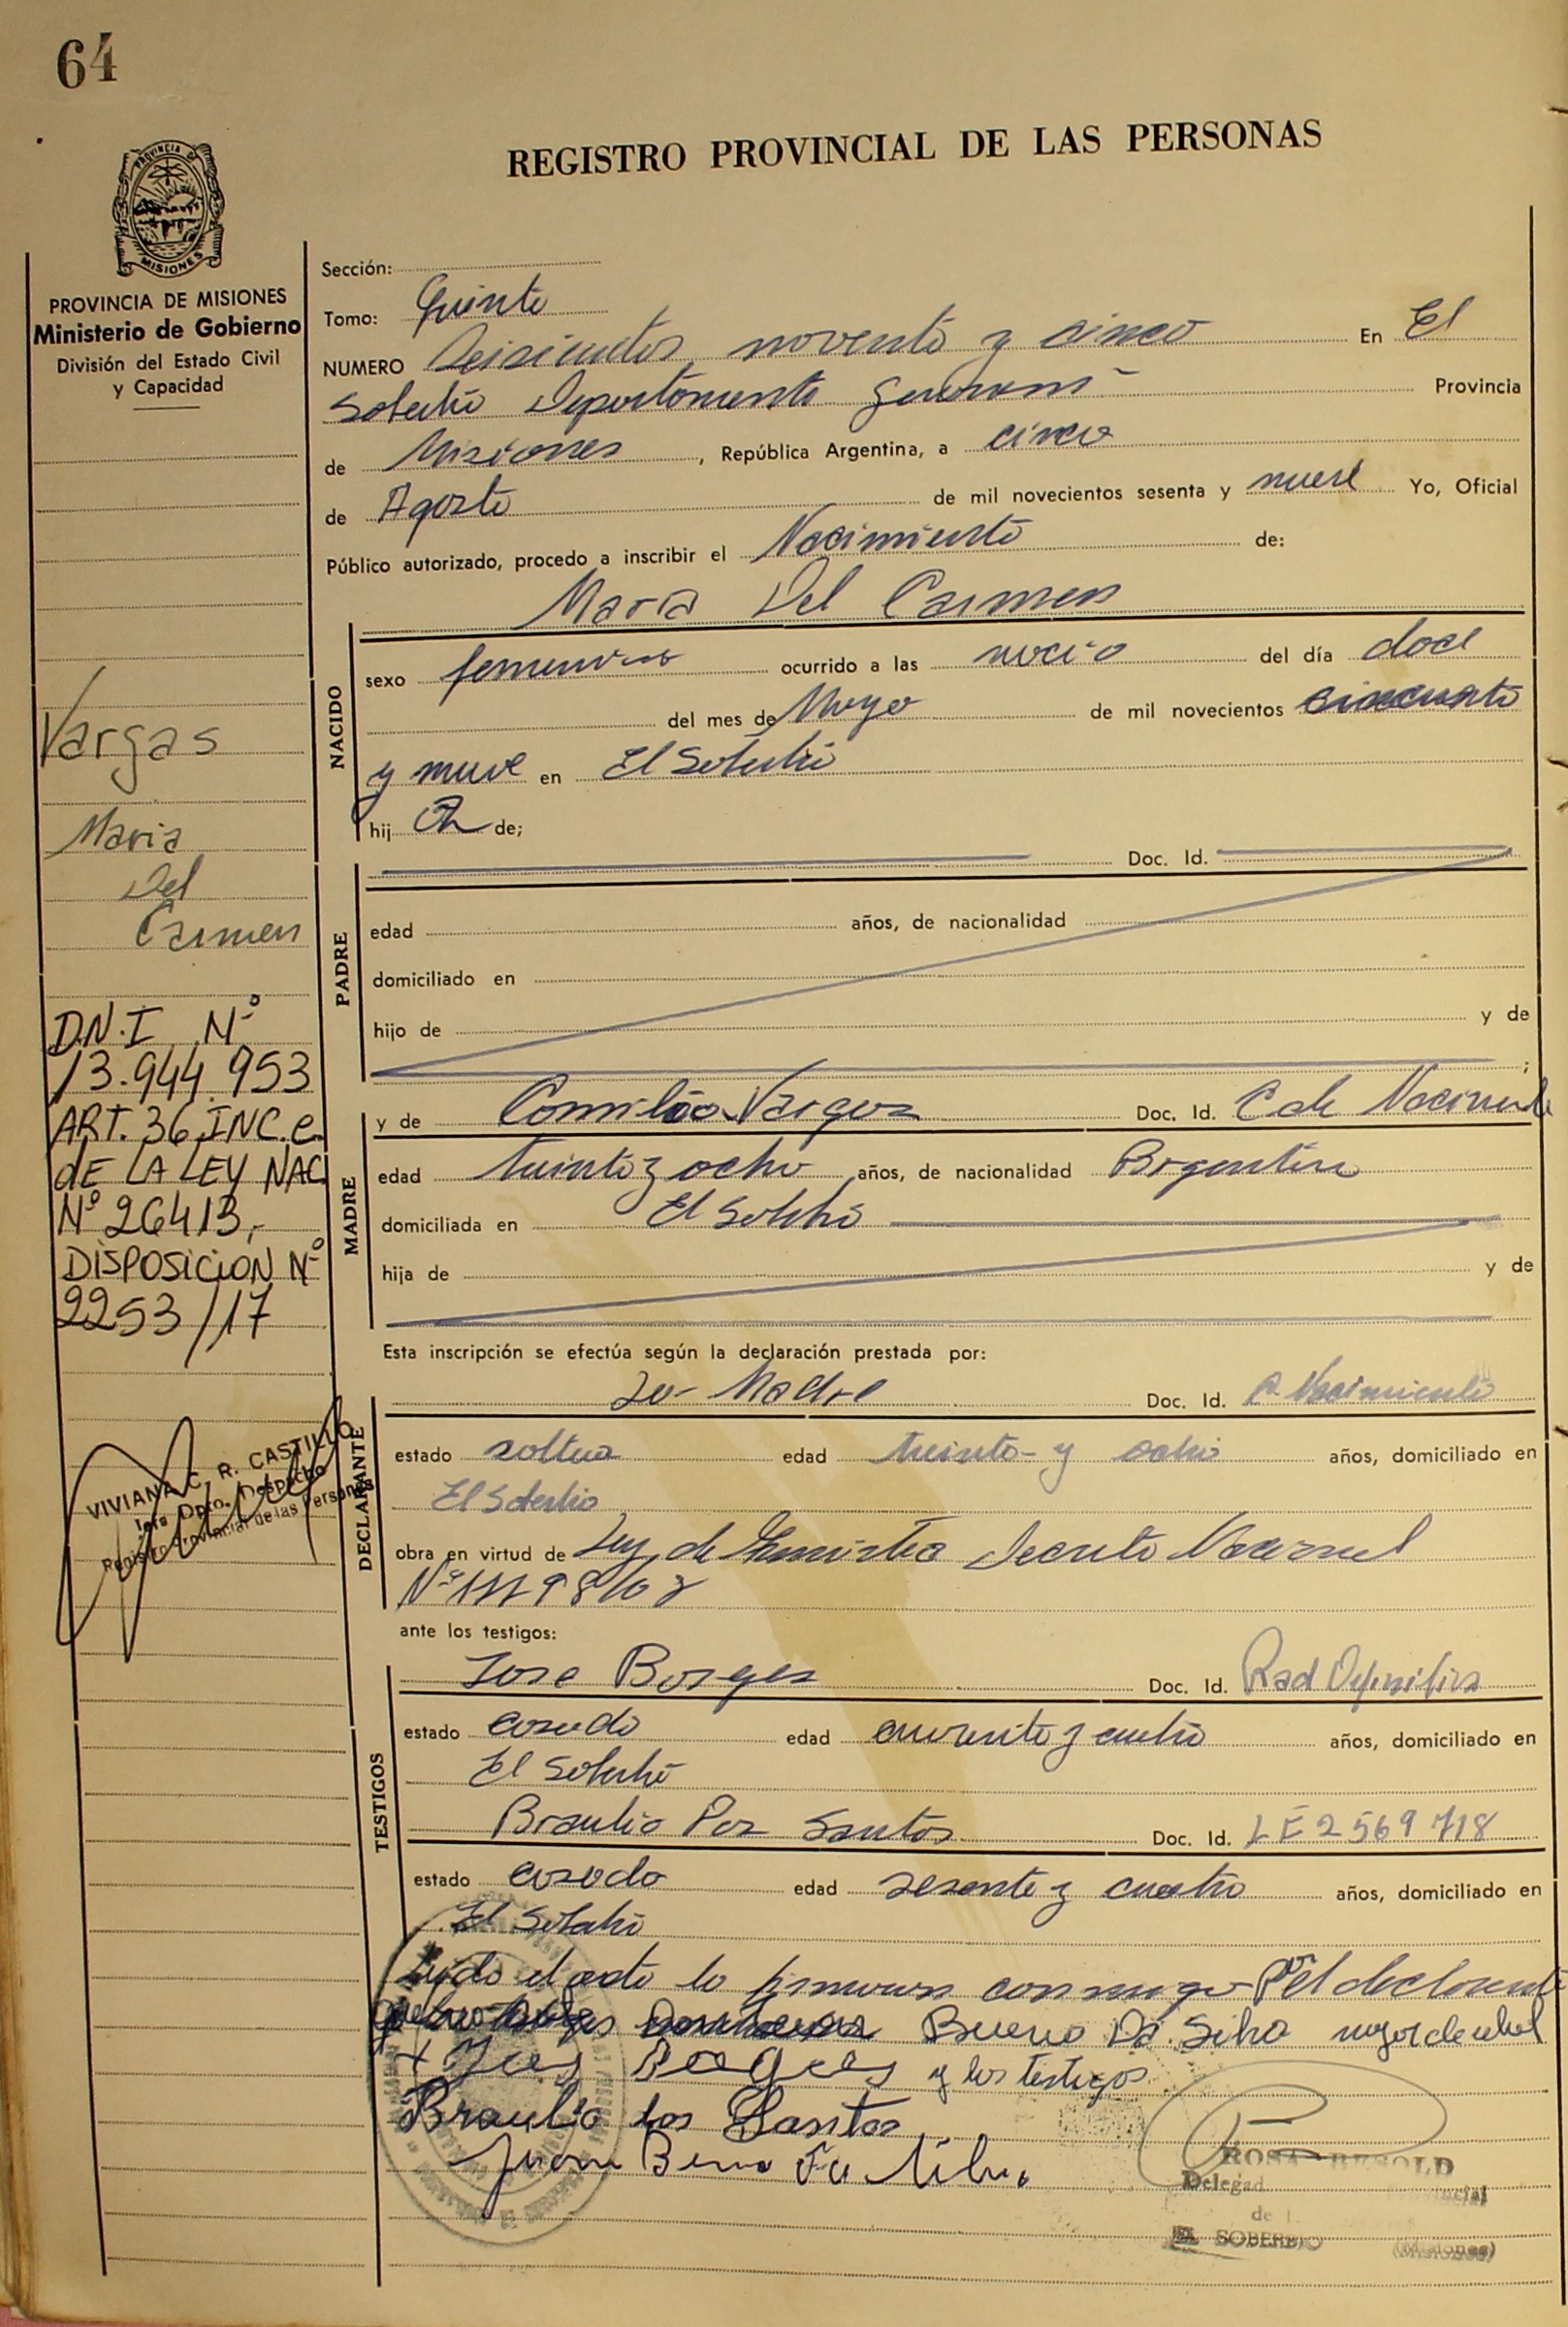 64
REGISTRO PROVINCIAL DE LAS PERSONAS
PROVINCIA DE MISIONES
PROVINCIA DE MISIONES
Ministerio de Gobierno
División del Estado Civil
y Capacidad
Sección:
Tomo: Quinto
NUMERO Seisientos noventa y cinco En El
Soberbio Departamento Guarani Provincia
de Misiones, República Argentina, a cinco
de Agosto de mil novecientos sesenta y nueve Yo, Oficial
Público autorizado, procedo a inscribir el Nacimiento de:
Maria Del Carmen
NACIDO
sexo femenino ocurrido a las del día doce
del mes de Mayo de mil novecientos cincuenta
y nueve en El Soberbio
hij a de;
Vargas
Maria
Del
Carmen
PADRE
Doc. Id.
edad años, de nacionalidad
domiciliado en
hijo de y de
;
D.N.I Nº
13.944.953
ART. 36 INC.e.
dE LA LEY NAC
Nº 26413,-
DISPOSICION Nº
2253/17
VIVIANA C. R. CASTILLO
Jefa Dpto. Despacho
Registro Provincial de las Personas
MADRE
y de Vargas Doc. Id. C de Nacimiento
edad treinta y ocho años, de nacionalidad Argentina
domiciliada en El Soberbio
hija de y de
Esta inscripción se efectúa según la declaración prestada por:
DECLARANTE
Su- Madre Doc. Id. C. Nacimiento
estado soltera edad treinta y ocho años, domiciliado en
El Soberbio
obra en virtud de Ley de Amnistia Decreto Nacional
Nº
ante los testigos:
TESTIGOS
Jose Borges Doc. Id. Rad Definitiva
estado casado edad cuarenta y cuatro años, domiciliado en
El Soberbio
Braulio Dos Santos Doc. Id. LE 2569718
estado casado edad sesenta y cuatro años, domiciliado en
El Soberbio
Leido el acta la firmaron conmigo Por el declarante
Bueno Da Silva mayor de edad
y los testigos
Braulio dos Santos
Juan
ROSA BESOLD
Delegad Provincial
de l
EL SOBERBIO (Misiones)